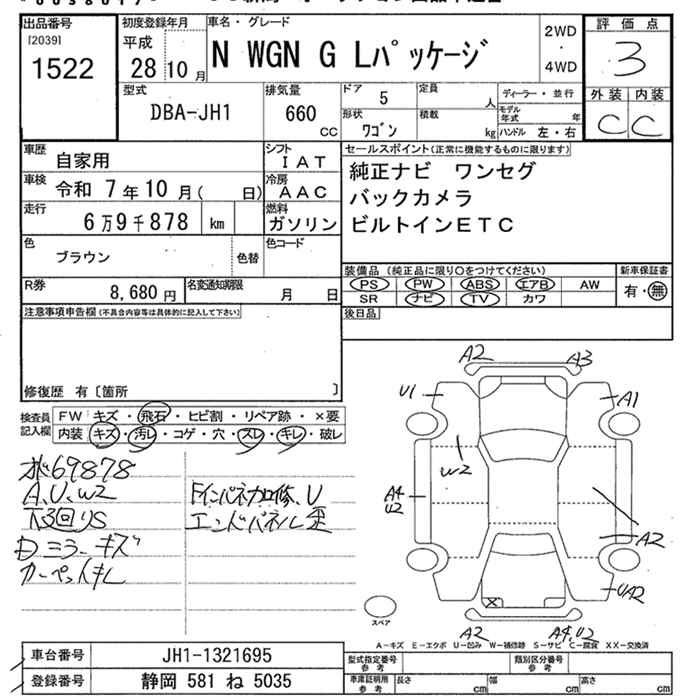 出品番号 初度登録年月 車名・グレード 評価点
[2039]
1522
平成
28 10 月
N WGN G Lパッケージ
2WD
・
4WD
3
外装 内装
C C
型式 排気量 ドア 定員 ディーラー・並行
DBA-JH1 660 CC 5 人 モデル年式 年
形状 積載
ワゴン kg ハンドル 左・右
車歴 シフト セールスポイント(正常に機能するものに限ります)
自家用 I A T 純正ナビ ワンセグ
車検 冷房
令和 7年10月( 日) A A C バックカメラ
走行 燃料
6万9千878 km ガソリン ビルトインETC
色 色コード
ブラウン 色替
装備品(純正品に限り○をつけてください) 新車保証書
R券 名変通知期限 PS PW ABS エアB AW 有・無
8,680 円 月 日 SR ナビ TV カワ
注意事項申告欄(不具合内容等は具体的に記入して下さい) 後日品
修復歴 有〔箇所 〕
検査員記入欄 FW キズ・飛石・ヒビ割・リペア跡・×要
内装 キズ・汚レ・コゲ・穴・スレ・キレ・破レ
69878
A、U、W2
下回りS
Dミラーキズ
カーペットキレ
U
エンドパネル歪
A2 A3
U1 A1
W2
A4
U2
A2
UA2
A2 A4,U2
スペア
A-キズ E-エクボ U-凹み W-補修跡 S-サビ C-腐食 XX-交換済
車台番号 JH1-1321695 型式指定番号参考 類別区分番号参考
登録番号 静岡 581 ね 5035 車庫証明用参考 長さ cm 幅 cm 高さ cm